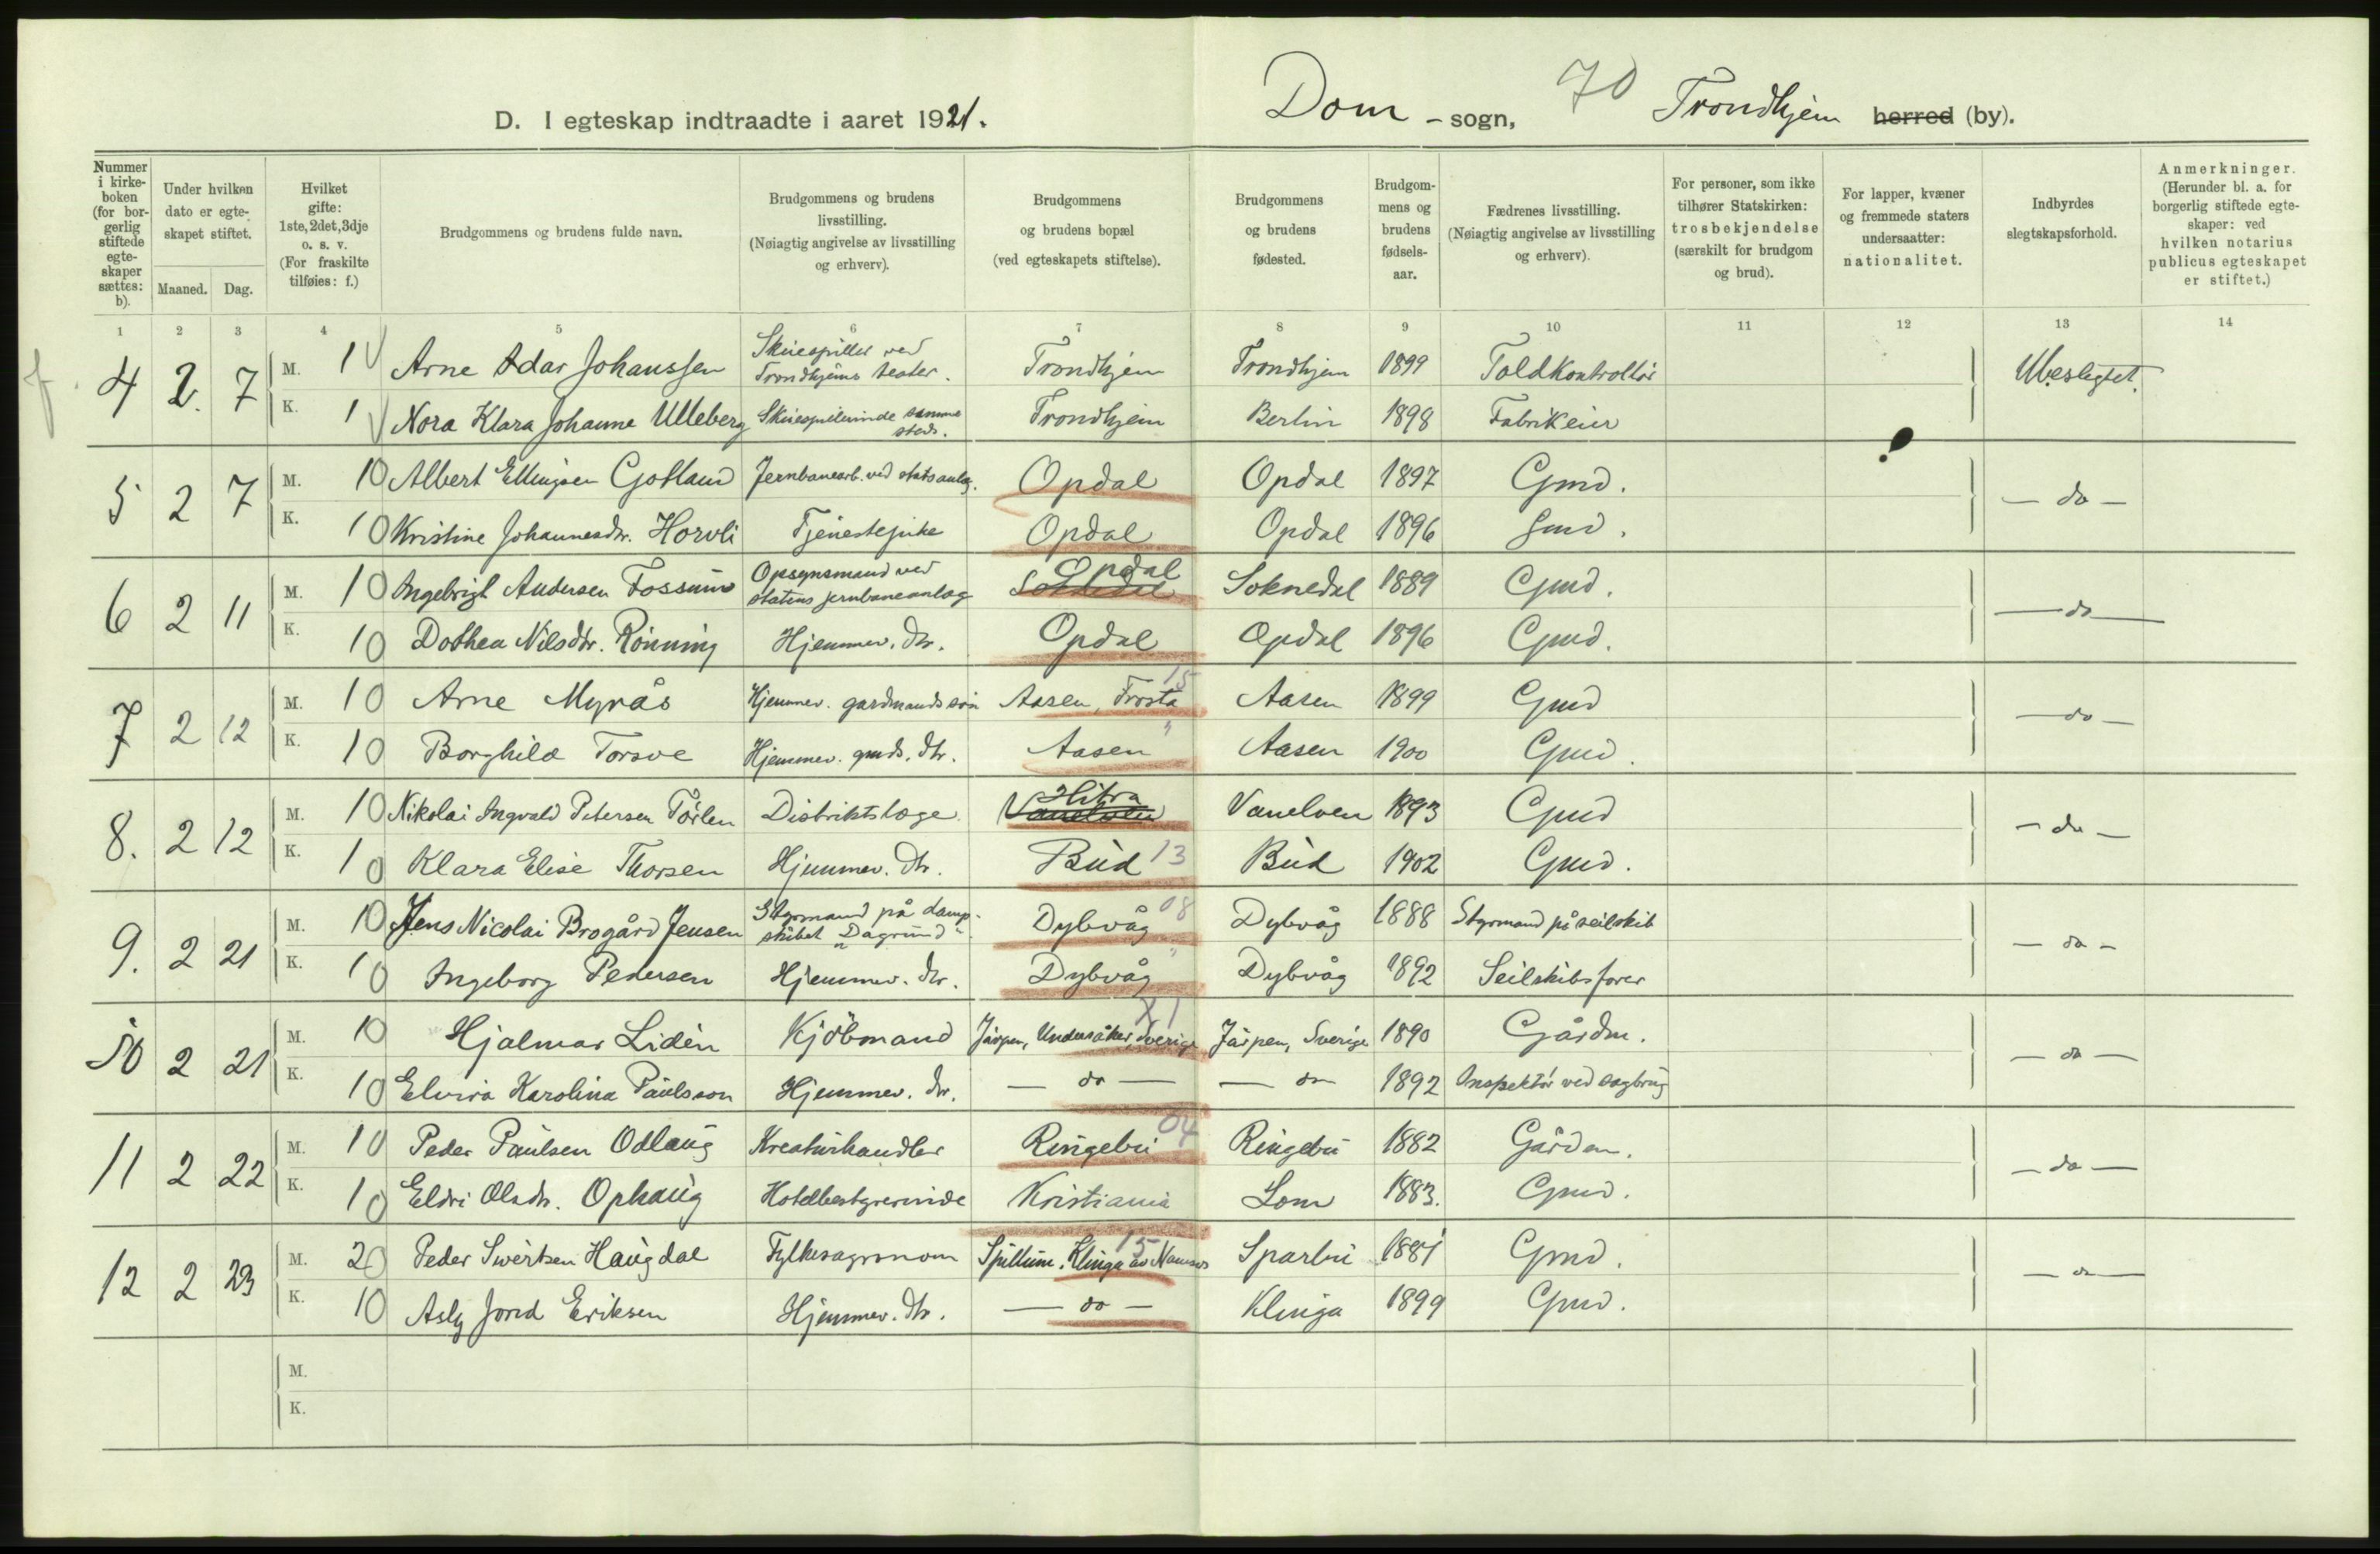 D. I egteskap indtraadte i aaret 1921. Dom - sogn, 70 Trondhjem herred (by).
Nummer i kirkeboken (for borgerlig stiftede egteskaper sættes: b). Under hvilken dato er egteskapet stiftet. Maaned. Dag. Hvilket gifte: 1ste, 2det, 3dje o. s. v. (For fraskilte tilføies: f.) Brudgommens og brudens fulde navn. Brudgommens og brudens livsstilling. (Nøiagtig angivelse av livsstilling og erhverv). Brudgommens og brudens bopæl (ved egteskapets stiftelse). Brudgommens og brudens fødested. Brudgommens og brudens fødselsaar. Fædrenes livsstilling. (Nøiagtig angivelse av livsstilling og erhverv). For personer, som ikke tilhører Statskirken: trosbekjendelse (særskilt for brudgom og brud). For lapper, kvæner og fremmede staters undersaatter: nationalitet. Indbyrdes slegtskapsforhold. Anmerkninger. (Herunder bl. a. for borgerlig stiftede egteskaper: ved hvilken notarius publicus egteskapet er stiftet.)
1 2 3 4 5 6 7 8 9 10 11 12 13 14
4 2. 7 M. 1 Arne Adar Johanssen Skuespiller ved Trondhjems teater. Trondhjem Trondhjem 1899 Toldkontrollør Ubeslegtet.
K. 1 Nora Klara Johanne Ulleberg Skuespillerinde samme steds. Trondhjem Berlin 1898 Fabrikeier
5 2 7 M. 10 Albert Ellingsen Gotland Jernbanearb. ved statsanlæg. Opdal Opdal 1897 Gmd. - do -
K. 10 Kristine Johannesdtr. Horvli Tjenestepike Opdal Opdal 1896 Gmd.
6 2 11 M. 10 Ingebrigt Andersen Fossum Opsynsmand ved statens jernbaneanlæg Soknedal Opdal Soknedal 1889 Gmd. - do -
K. 10 Dothea Nilsdtr. Rönning Hjemmev. dtr. Opdal Opdal 1896 Gmd.
7 2 12 M. 10 Arne Myrås Hjemmev. gardmandssön Aasen, Frosta 15 Aasen 1899 Gmd - do -
K. 10 Borghild Torsve Hjemmev. gmds. dtr. Aasen " Aasen 1900 Gmd.
8. 2 12 M. 10 Nikolai Ingvald Petersen Törlen Distriktslæge. Vanelven Hitra Vanelven 1893 Gmd - do -
K. 10 Klara Elise Thorsen Hjemmev. dtr. Bud 13 Bud 1902 Gmd.
9. 2 21 M. 10 Jens Nicolai Brogård Jensen Styrmand på dampskibet „Dagrun" Dybvåg 08 Dybvåg 1888 Styrmand på seilskib - do -
K. 10 Ingeborg Pedersen Hjemmev. dtr. Dybvåg " Dybvåg 1892 Seilskibsfører
10 2 21 M. 10 Hjalmar Lidén Kjöbmand Järpen, Undersåker, Sverige X1 Järpen, Sverige 1890 Gårdm. - do -
K. 10 Elvira Karolina Paulsson Hjemmev. dtr. - do - - do 1892 Inspektör ved sagbrug
11 2 22 M. 10 Peder Paulsen Odlaug Kreaturhandler Ringebu 04 Ringebu 1882 Gårdm. - do -
K. 10 Eldri Olsdtr. Ophaug Hotelbestyrerinde Kristiania Lom 1883. Gmd.
12 2 23 M. 20 Peder Sivertsen Haugdal Fylkesagronom Spillum, Klinga av Namsos 15 Sparbu 1881 Gmd. - do -
K. 10 Asly Jorid Eriksen Hjemmev. dtr. - do - Klinga 1899 Gmd.
M.
K.